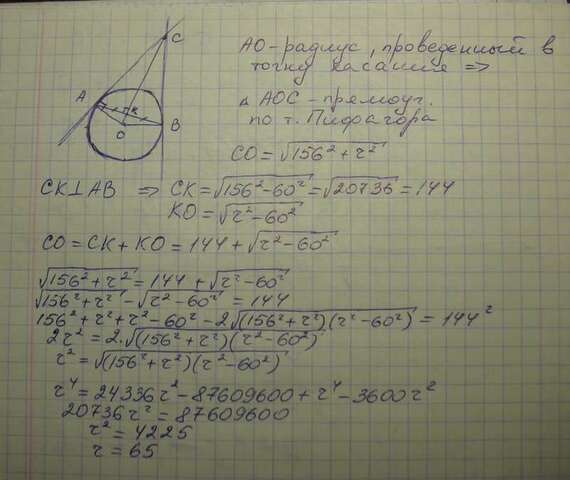 C
A
K
O
B
AO-радиус, проведенный в
точку касания =>
△ AOC - прямоуг.
по т. Пифагора
CO = √(156² + r²)
CK ⊥ AB => CK = √(156² - 60²) = √20736 = 144
KO = √(r² - 60²)
CO = CK + KO = 144 + √(r² - 60²)
√(156² + r²) = 144 + √(r² - 60²)
√(156² + r²) - √(r² - 60²) = 144
156² + r² + r² - 60² - 2√((156² + r²)(r² - 60²)) = 144²
2r² = 2·√((156² + r²)(r² - 60²))
r² = √((156² + r²)(r² - 60²))
r⁴ = 24336r² - 87609600 + r⁴ - 3600r²
20736r² = 87609600
r² = 4225
r = 65